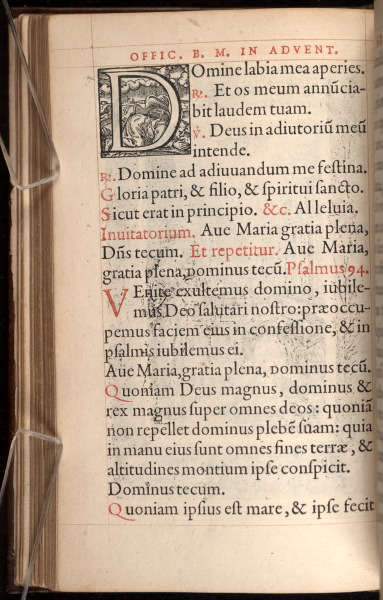 OFFIC. B. M. IN ADVENT.
DOmine labia mea aperies.
℟. Et os meum annūcia-
bit laudem tuam.
℣. Deus in adiutoriū meū
intende.
℟. Domine ad adiuuandum me feſtina.
Gloria patri, & filio, & ſpiritui ſancto.
Sicut erat in principio. &c. Alleluia.
Inuitatorium. Aue Maria gratia plena,
Dñs tecum. Et repetitur. Aue Maria,
gratia plena, dominus tecū. Pſalmus 94.
VEnite exultemus domino, iubile-
mus Deo ſalutari noſtro: præoccu-
pemus faciem eius in confeſſione, & in
pſalmis iubilemus ei.
Aue Maria, gratia plena, dominus tecū.
Quoniam Deus magnus, dominus &
rex magnus ſuper omnes deos: quoniā
non repellet dominus plebē ſuam: quia
in manu eius ſunt omnes fines terræ, &
altitudines montium ipſe conſpicit.
Dominus tecum.
Quoniam ipſius eſt mare, & ipſe fecit